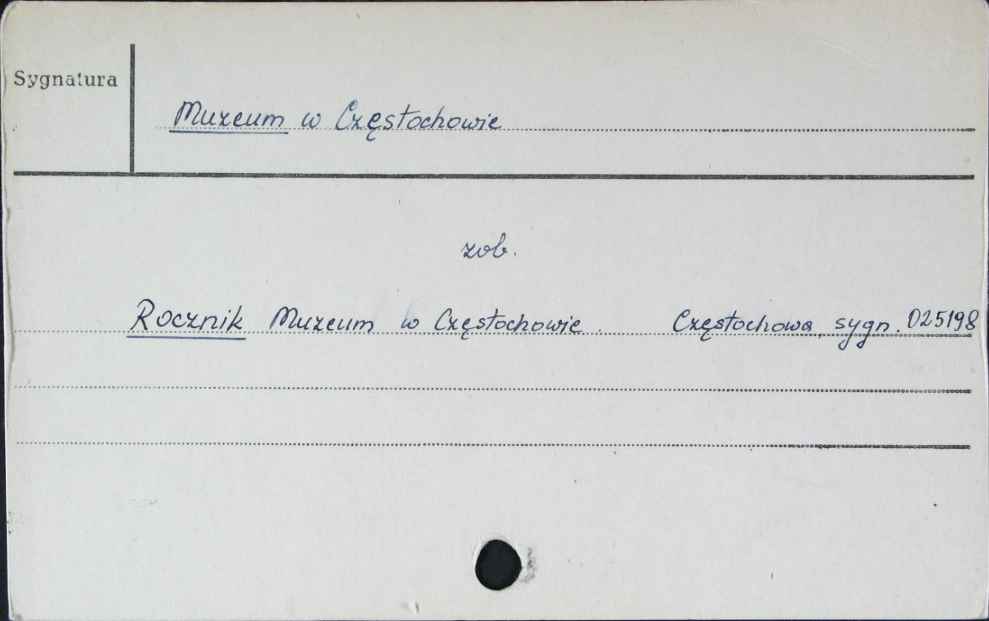 Sygnatura
Muzeum w Częstochowie
zob.
Rocznik Muzeum w Częstochowie. Częstochowa, sygn. 025198